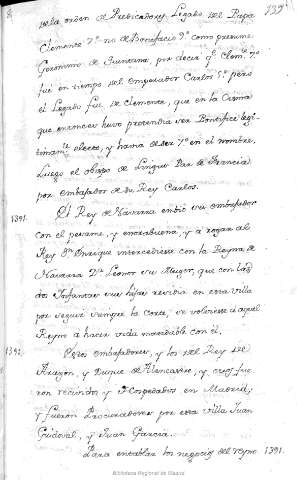 de la orden de Predicadores, Legado del Papa
Clemente 7.º no de Bonifacio 9.º como presume
Geronimo de Quintana, por decir q.e Clem.te 7.º
fue en tiempo del emperador Carlos 5.º pero
el Legado fue de Clemente, que en la Cisma
que entonces huvo pretendia ser Pontifice legi-
timam.te electo, y havia de ser 7.º en el nombre.
Luego el obispo de Par de Francia
por embajador de su Rey Carlos.
1391. El Rey de Navarra embió su embajador
con el pesame, y enorabuena, y a rogar al
Rey D.n Enrique intercediese con la Reyna de
Navarra D.a Leonor su Muger, que con las
dos Infantas sus hijas residia en esta villa
por seguir siempre la Corte, se volviese á aquel
Reyno a hacer vida maridable con él.
1391. Estos embajadores, y los del Rey de
Aragon, y Duque de Alencastre, y otros fue
ron recividos y Hospedados en Madrid,
y fueron Procuradores por esta villa Juan
y Juan Garcia.
Para entablar los negocios del reyno 1391.
Biblioteca Regional de Madrid